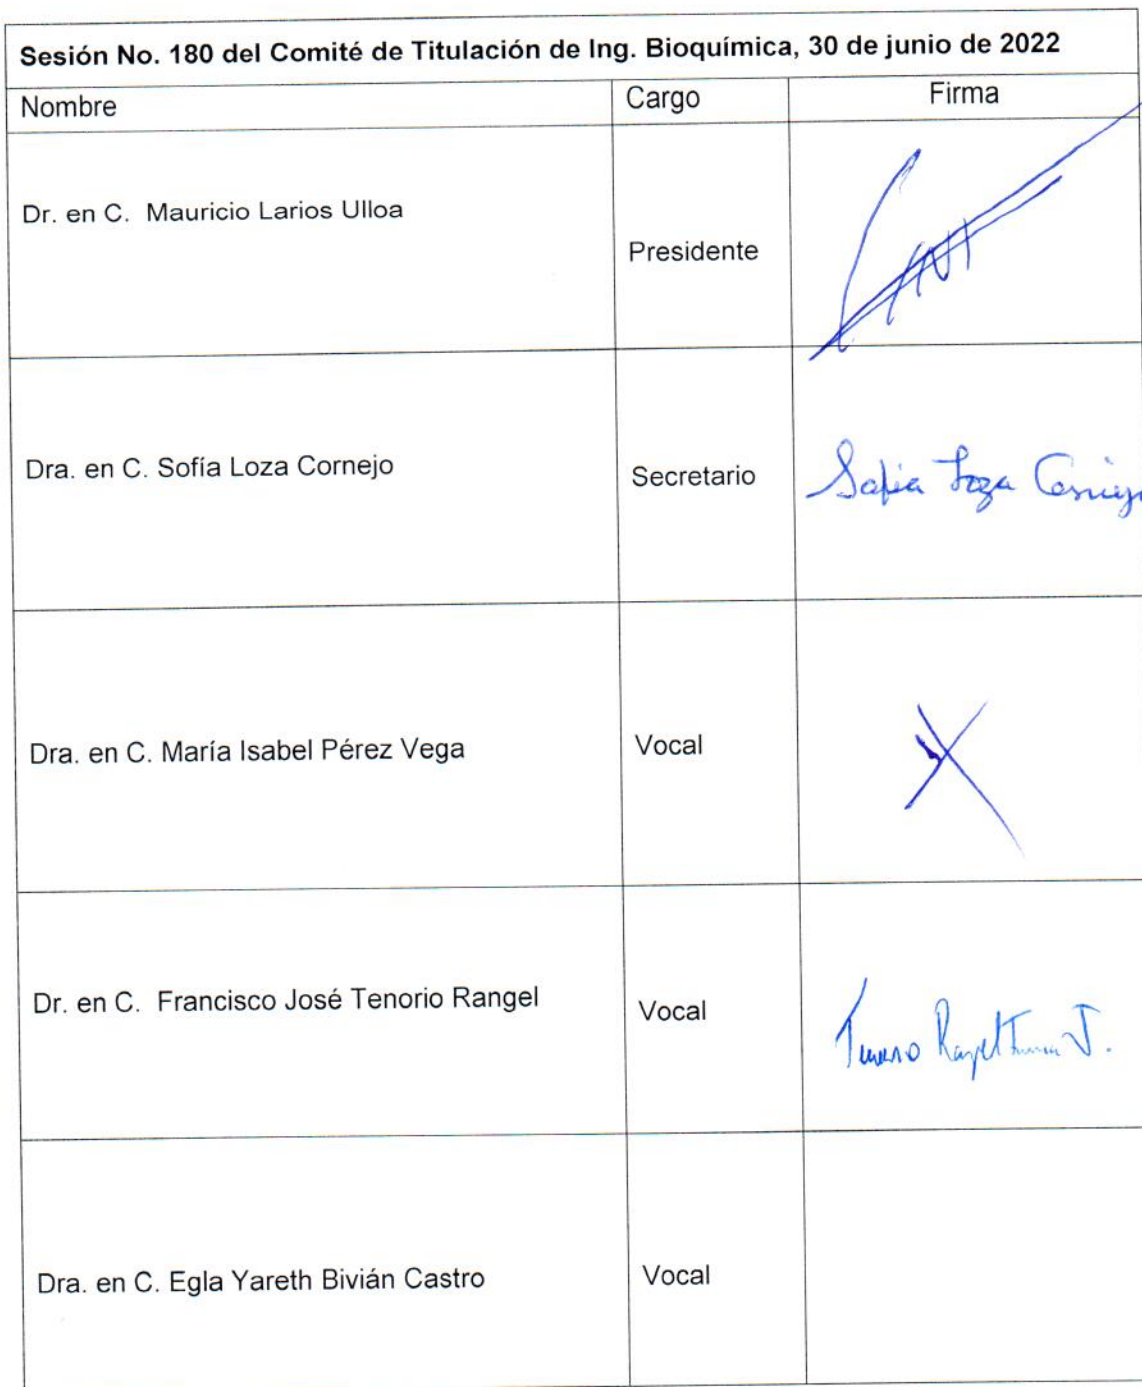 Sesión No. 180 del Comité de Titulación de Ing. Bioquímica, 30 de junio de 2022
Nombre Cargo Firma
Dr. en C. Mauricio Larios Ulloa
Presidente
Dra. en C. Sofía Loza Cornejo Secretario Sofia Loza Cornejo
Dra. en C. María Isabel Pérez Vega Vocal
Dr. en C. Francisco José Tenorio Rangel Vocal Tenorio Rangel J.
Dra. en C. Egla Yareth Bivián Castro Vocal